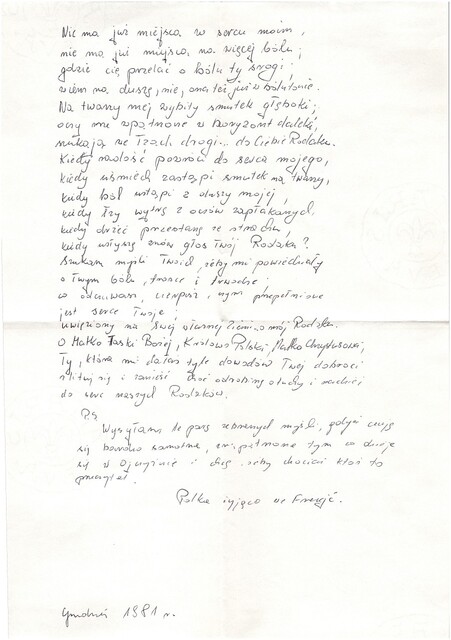 Nie ma już miejsca w sercu moim,
nie ma już miejsca na więcej bólu;
gdzie cię przelać o bólu ty srogi;
wiem na duszę, nie, ona też już w bólu tonie.
Na twarzy mej wybity smutek głęboki;
oczy me wpatrzone w horyzont daleki,
szukają we łzach drogi... do Ciebie Rodaku.
Kiedy radość powróci do serca mojego,
kiedy uśmiech zastąpi smutek na twarzy,
kiedy ból ustąpi z duszy mojej,
kiedy łzy wytrę z oczów zapłakanych,
kiedy drżeć przestanę ze strachu,
kiedy usłyszę znów głos Twój Rodaku?
Szukam myśli Twoich, żeby mi powiedziały
o Twym bólu, trosce i
co odczuwasz, cierpisz, czym przepełnione
jest serce Twoje;
uwięziony na swej własnej ziemi o mój Rodaku.
O Matko Łaski Bożej, Królowo Polski, Matko Chrystusowa,
Ty, która mi dałaś tyle dowodów Twej dobroci
zlituj się i zanieść choć odrobinę otuchy i nadziei
do serc naszych Rodaków.
P.S.
Wysyłam te parę zebranych myśli, gdyż czuję
się bardzo samotna, tym co dzieje
się w Ojczyźnie i chcę żeby chociaż ktoś to
przeczytał.
Polka żyjąca we Francji.
Grudzień 1981 r.